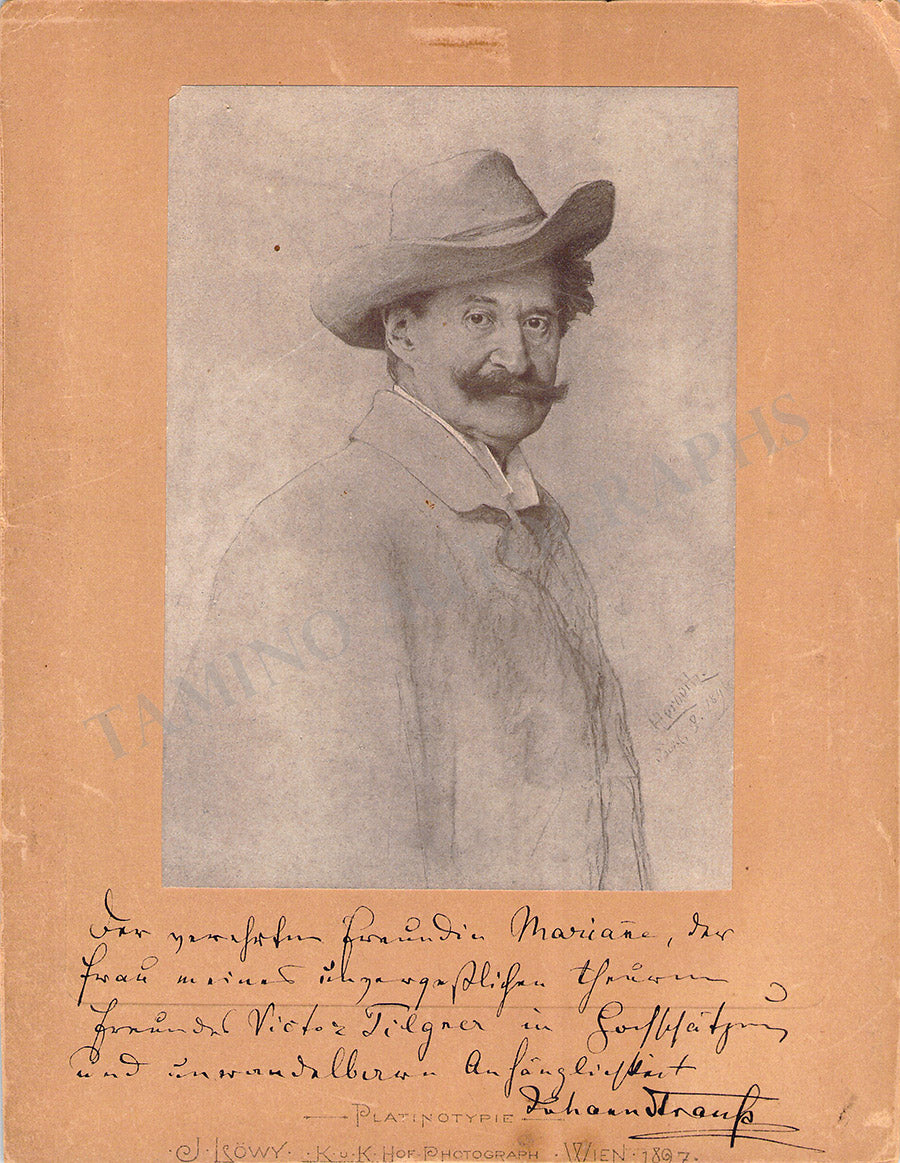 TAMINO AUTOGRAPHS
Horovitz
Der verehrten Freundin Mariane, der
Frau meines unvergeßlichen theuren
Freundes Victor Tilgner in Hochschätzung
und unwandelbaren Anhänglichkeit
Johann Strauß
PLATINOTYPIE
J. LÖWY · K. u. K. HOF-PHOTOGRAPH · WIEN · 1897.